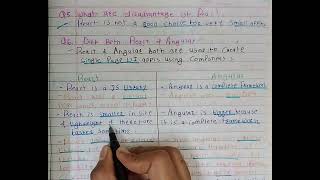 Q5. What are disadvantage of React?
React is not a good choice for very small apps
Q6. Diff Both React & Angular
React & Angular both are used to create
single page UI apps using Components
React
Angular
- React is a JS library
- Angular is a complete framework
- React is smaller in size
& lightweight & therefore
faster sometime
- Angular is bigger because
it is a complete framework